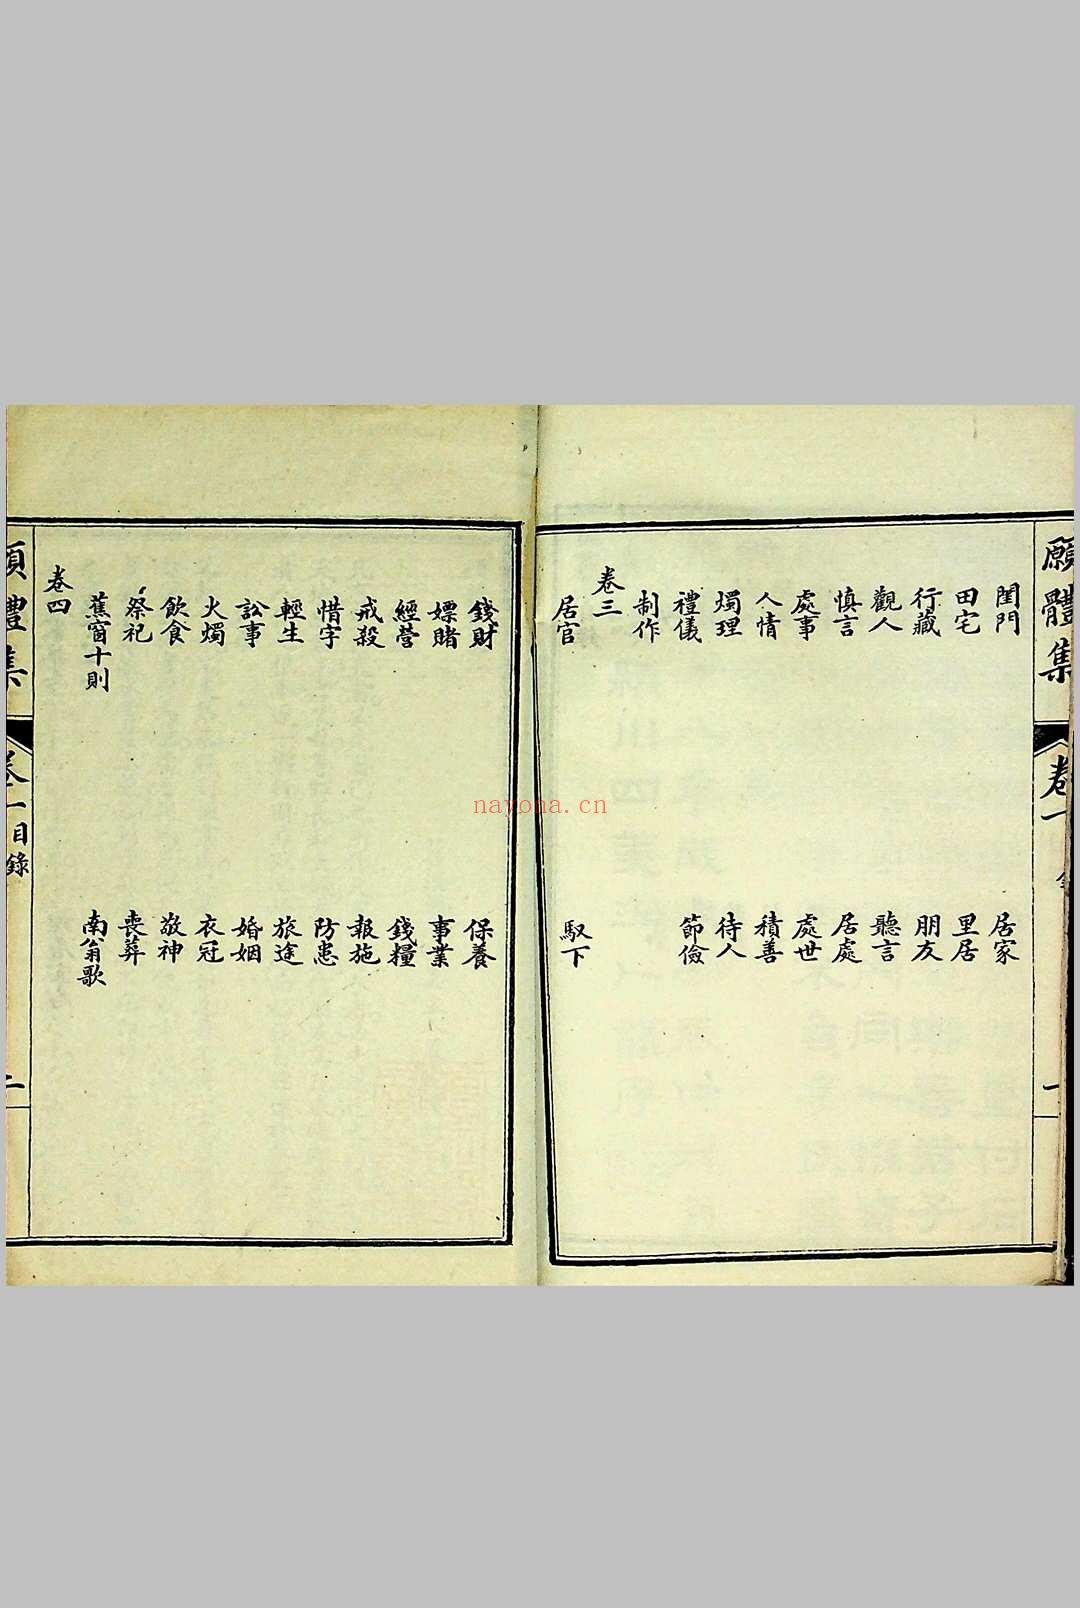 願體集
卷一
一
閨門 居家
田宅 里居
行藏 朋友
觀人 聽言
慎言 居處
處事 處世
人情 積善
燭理 待人
禮儀 節儉
制作
卷三
居官 馭下
錢財 保養
嫖賭 事業
經營 錢糧
戒殺 報施
惜字 防患
輕生 旅途
訟事 婚姻
火燭 衣冠
飲食 敬神
祭祀 喪葬
蕉窗十則 南翁歌
卷四
願體集
目錄
二
nayona.cn